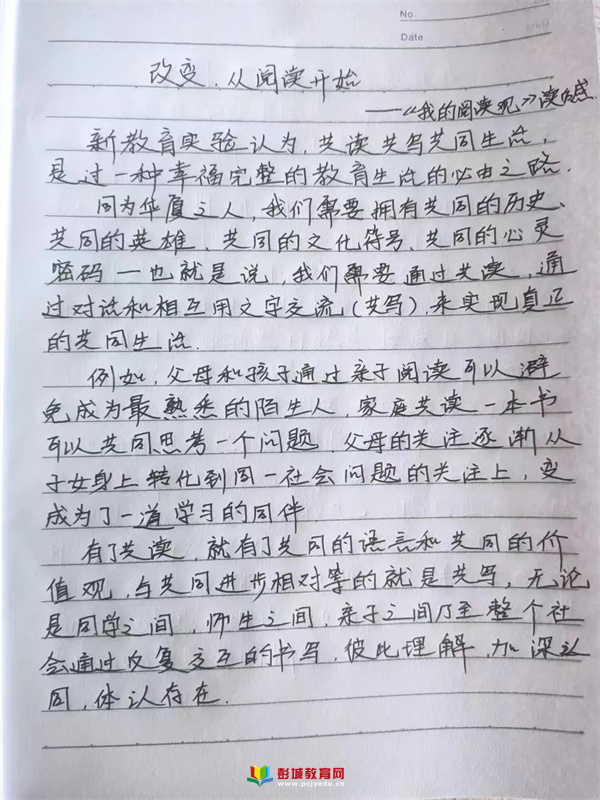 No.
Date
改变，从阅读开始
——《我的阅读观》读后感
新教育实验认为，共读共写共同生活，
是过一种幸福完整的教育生活的必由之路.
同为华夏之人，我们需要拥有共同的历史、
共同的英雄、共同的文化符号、共同的心灵
密码—也就是说，我们需要通过共读，通
过对话和相互用文字交流（共写），来实现真正
的共同生活.
例如，父母和孩子通过亲子阅读可以避
免成为最熟悉的陌生人，家庭共读一本书
可以共同思考一个问题，父母的关注逐渐从
子女身上转化到同一社会问题的关注上，变
成为了一道学习的同伴.
有了共读，就有了共同的语言和共同的价
值观，与共同进步相对等的就是共写，无论
是同学之间，师生之间，亲子之间乃至整个社
会通过反复交互的书写，彼此理解，加深认
同，体认存在.
彭城教育网
www.pcjyedu.cn